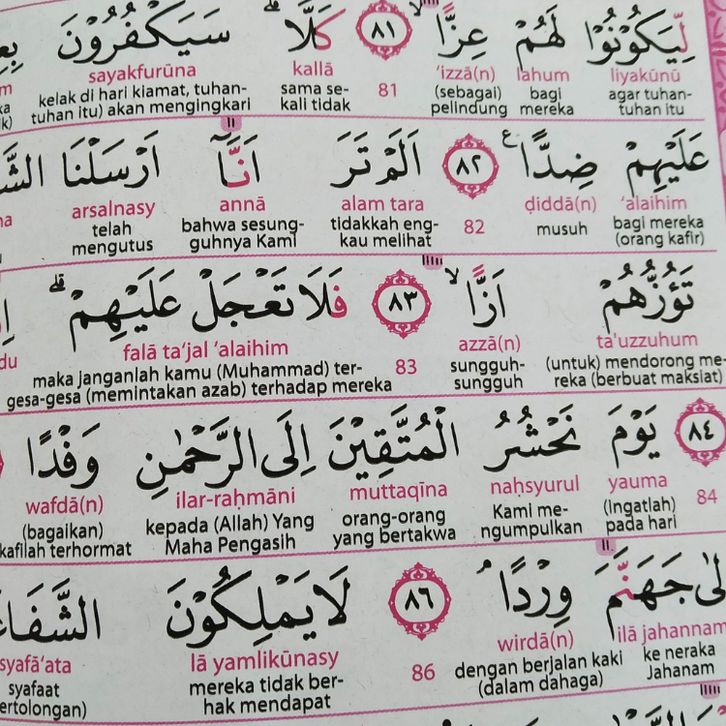 لِّيَكُوْنُوْا لَهُمْ عِزًّاۙ ٨١ كَلَّاۗ سَيَكْفُرُوْنَ
liyakūnū lahum ‘izzā(n) 81 kallā sayakfurūna
agar tuhan-tuhan itu bagi mereka (sebagai) pelindung sama se-kali tidak kelak di hari kiamat, tuhan-tuhan itu) akan mengingkari
عَلَيْهِمْ ضِدًّا ࣖ ٨٢ اَلَمْ تَرَ اَنَّآ اَرْسَلْنَا
‘alaihim ḍiddā(n) 82 alam tara annā arsalnasy
bagi mereka (orang kafir) musuh tidakkah eng-kau melihat bahwa sesung-guhnya Kami telah mengutus
تَؤُزُّهُمْ اَزًّاۙ ٨٣ فَلَا تَعْجَلْ عَلَيْهِمْۗ
ta'uzzuhum azzā(n) 83 falā ta‘jal ‘alaihim
(untuk) mendorong me-reka (berbuat maksiat) sungguh-sungguh maka janganlah kamu (Muhammad) ter-gesa-gesa (memintakan azab) terhadap mereka
٨٤ يَوْمَ نَحْشُرُ الْمُتَّقِيْنَ اِلَى الرَّحْمٰنِ وَفْدًا
84 yauma naḥsyurul muttaqīna ilar-raḥmāni wafdā(n)
(Ingatlah) pada hari Kami me-ngumpulkan orang-orang yang bertakwa kepada (Allah) Yang Maha Pengasih (bagaikan) kafilah terhormat
اِلٰى جَهَنَّمَ وِرْدًاۘ ٨٦ لَا يَمْلِكُوْنَ
ilā jahannam wirdā(n) 86 lā yamlikūnasy syafā‘ata
ke neraka Jahanam dengan berjalan kaki (dalam dahaga) mereka tidak ber-hak mendapat syafaat